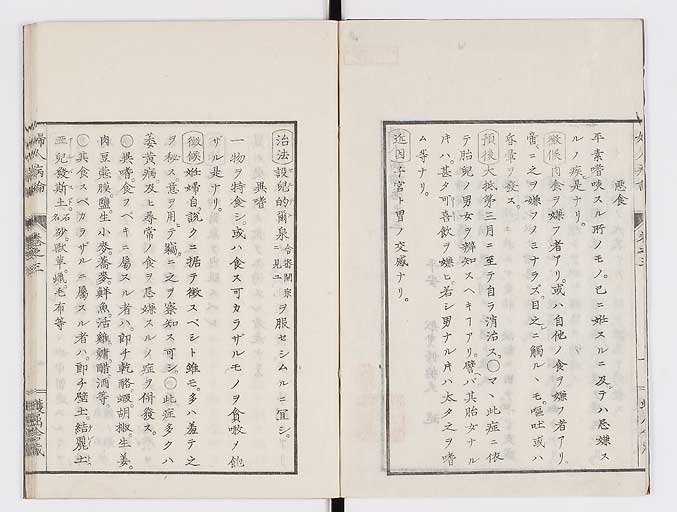 悪食
平素嗜啖スル所ノモノ。已ニ妊スルニ及テハ忌嫌ス
ルノ疾是ナリ。
徴候 肉食ヲ嫌フ者アリ。或ハ自他ノ食ヲ嫌フ者アリ。
啻ニ之ヲ嫌フノミナラズ。目之ニ觸ルヽモ。嘔吐或ハ
昏暈ヲ發ス。
預後 大抵第三月ニ至テ自ラ消治ス。○マヽ此症ニ依
テ胎兒ノ男女ヲ辨知スヘキコアリ。譬バ其胎女ナル
片ハ。甚タ可喜飲ヲ嫌ヒ。若シ男ナル片ハ太タ之ヲ嗜
ム等ナリ。
近因 子宮ト胃ノ交感ナリ。
治法 設兒的爾泉ヲ服セシムルニ宜シ。
異嗜
一物ヲ特食シ。或ハ食ス可カラザルモノヲ貪噉シ飽
ザル是ナリ。
徴候 妊婦自說クニ據テ徴スベシト雖モ。多ハ羞テ之
ヲ秘ス。意ヲ用テ竊ニ之ヲ察知ス可シ。○此症多クハ
萎黄病及ヒ尋常ノ食ヲ忌嫌スルノ症ヲ併發ス。
○異嗜。食フベキニ屬スル者ハ。即チ乾酪。胡椒。生姜。
肉豆蔲。鹽。生小麥。蕎麥。鮮魚。活雞。醋。酒等。
○其食スベカラザルニ屬スル者ハ。即チ壁土。
砂。獸革。蠟。毛布等。
婦人病論